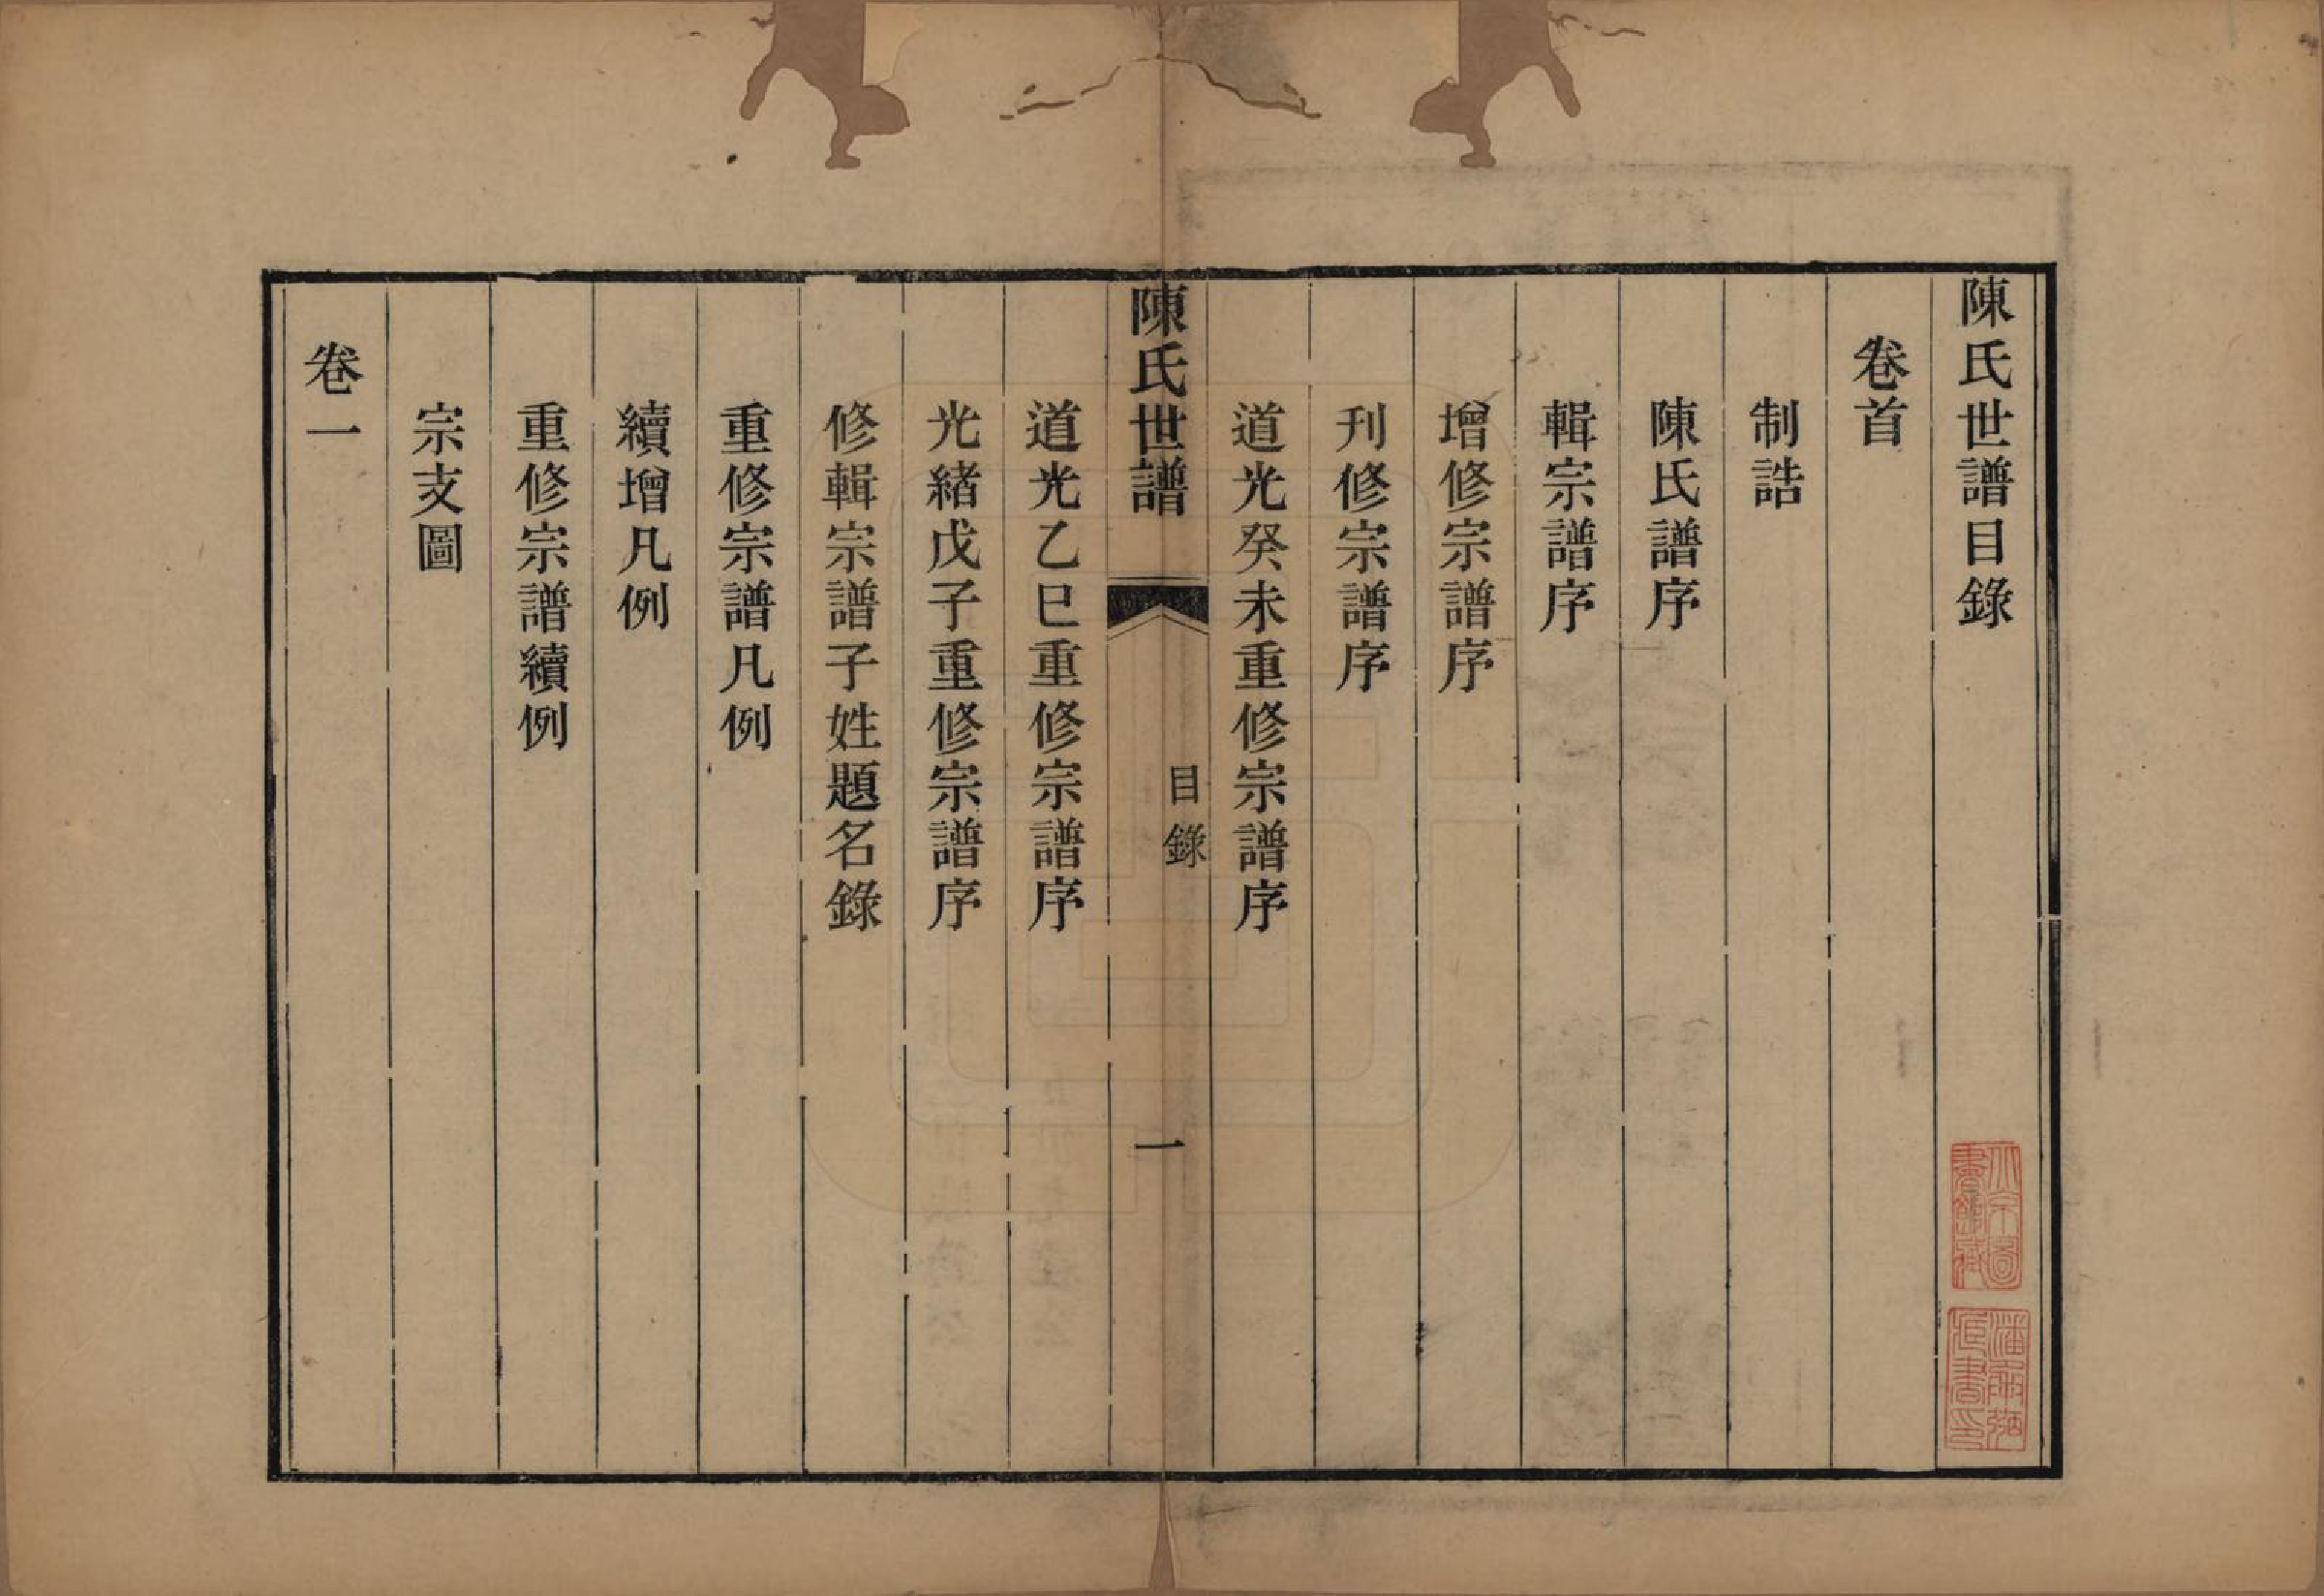 陳氏世譜目錄
卷首
制誥
陳氏譜序
輯宗譜序
增修宗譜序
刊修宗譜序
道光癸未重修宗譜序
陳氏世譜
目錄
一
道光乙巳重修宗譜序
光緒戊子重修宗譜序
修輯宗譜子姓題名錄
重修宗譜凡例
續增凡例
重修宗譜續例
宗支圖
卷一